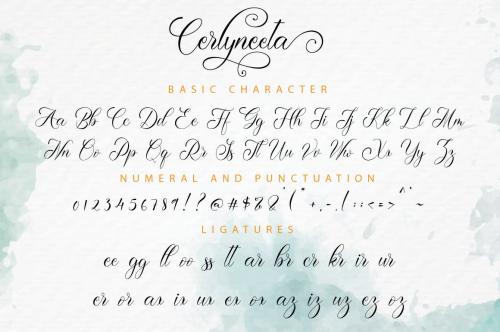 Cerlyneeta
BASIC CHARACTER
Aa Bb Cc Dd Ee Ff Gg Hh Ii Jj Kk Ll Mm
Nn Oo Pp Qq Rr Ss Tt Uu Vv Ww Xx Yy Zz
NUMERAL AND PUNCTUATION
0123456789!?@#$&
LIGATURES
ee gg ll oo ss tt ar br cr kr ir ur
er or
az iz uz ez oz